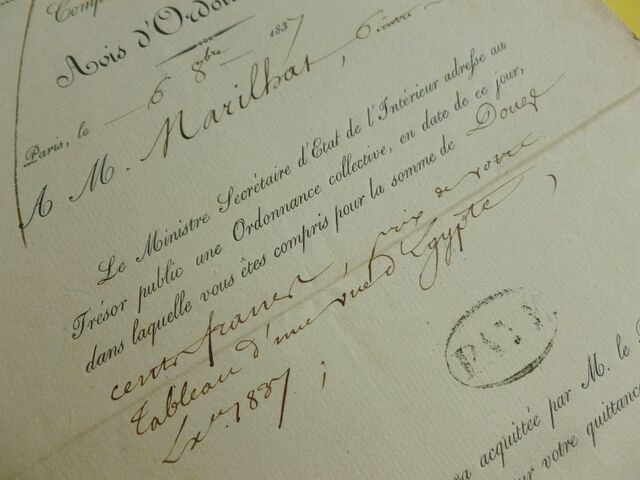 Avis d'Ordon
Paris, le 6 8bre 1837
A M. Marilhat,
Le Ministre Secrétaire d'Etat de l'Intérieur adresse au
Trésor public une Ordonnance collective, en date de ce jour,
dans laquelle vous êtes compris pour la somme de Douze
cents francs, prix de votre
tableau d'une vue d'Egypte,
Ex. 1837 ;
PAYÉ
ra acquittée par M. le
votre quittance